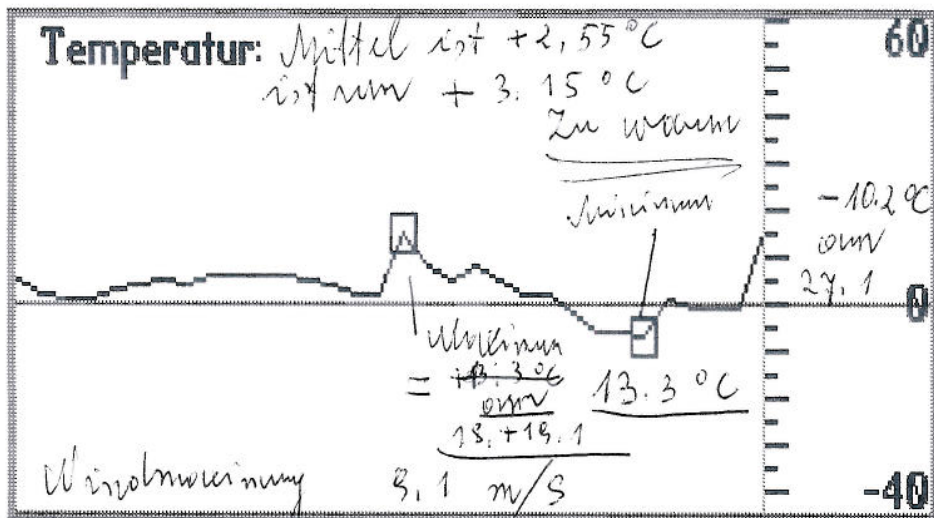 Temperatur: Mittel ist +2,55°C
60
ist um + 3.15°C
Zu warm
Minimum
-10.2°C
am
27.1
0
Maximum
= +13.3°C 13.3°C
am
18.+19.1
Windmaximum 9,1 m/s
-40